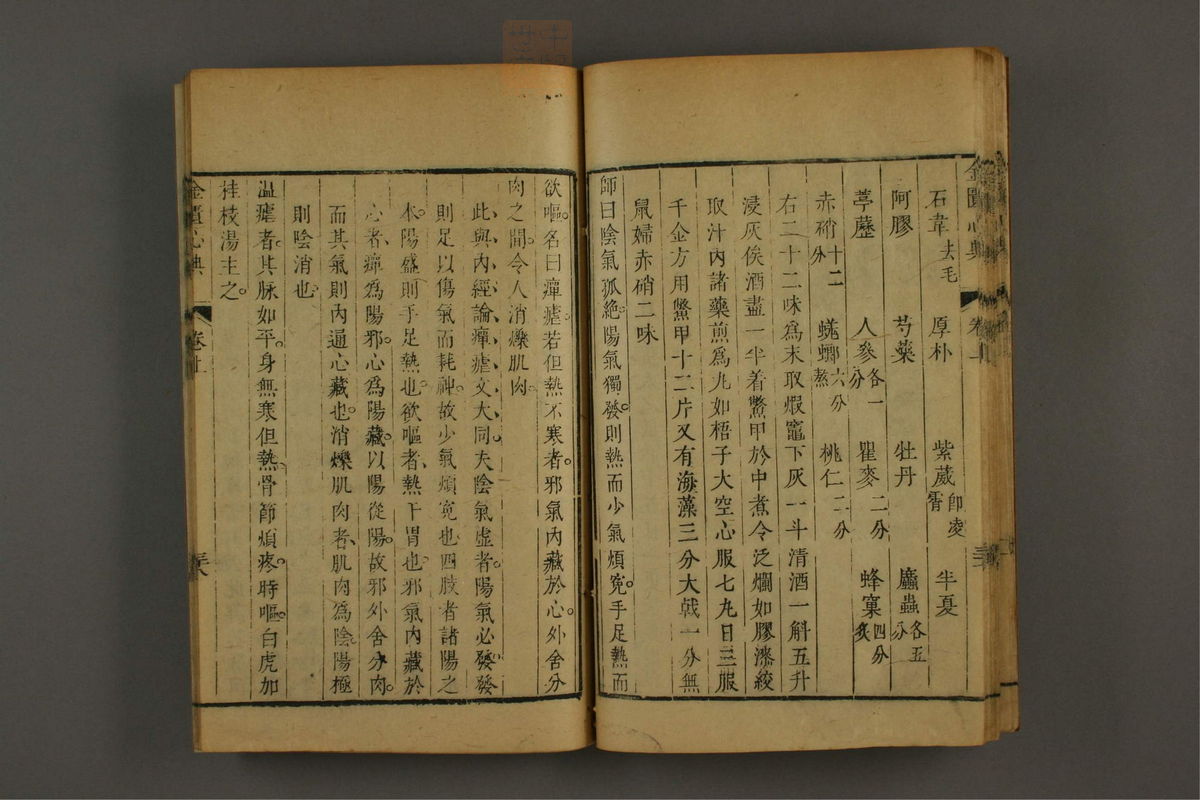 石韋去毛 厚朴 紫葳即凌霄 半夏
阿膠 芍藥 牡丹 䗪蟲各五分
葶藶 人參各一分 瞿麥二分 蜂窠四分炙
赤硝十二分 蜣螂六分熬 桃仁二分
右二十二味爲末取煆竈下灰一斗清酒一斛五升
浸灰俟酒盡一半着鱉甲於中煮令泛爛如膠漆絞
取汁內諸藥煎爲丸如梧子大空心服七丸日三服
千金方用鱉甲十二片又有海藻三分大戟一分無
鼠婦赤硝二味
師曰陰氣孤絶陽氣獨發則熱而少氣煩寃手足熱而
欲嘔名曰癉瘧若但熱不寒者邪氣內藏於心外舍分
肉之間令人消爍肌肉
此與內經論癉瘧文大同夫陰氣虛者陽氣必發發
則足以傷氣而耗神故少氣煩寃也四肢者諸陽之
本陽盛則手足熱也欲嘔者熱干胃也邪氣內藏於
心者癉爲陽邪心爲陽藏以陽從陽故邪外舍分肉
而其氣則內通心藏也消爍肌肉者肌肉爲陰陽極
則陰消也
温瘧者其脉如平身無寒但熱骨節煩疼時嘔白虎加
桂枝湯主之
金匱心典 卷上